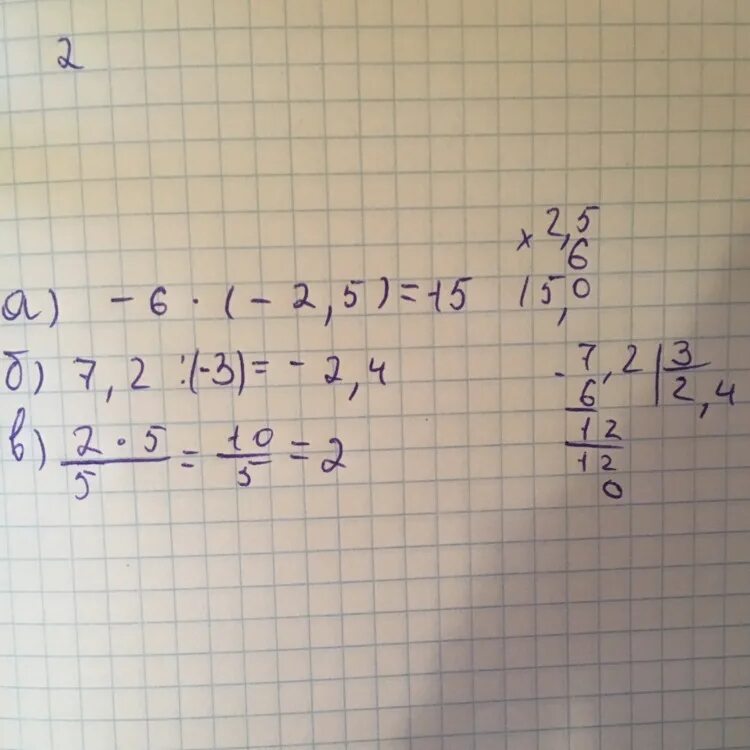 2
а) - 6 · (- 2,5) = 15
× 2,5
6
15,0
б) 7,2 : (-3) = - 2,4
- 7,2 | 3
6 | 2,4
12
12
0
в) 2 · 5 / 5 = 10 / 5 = 2